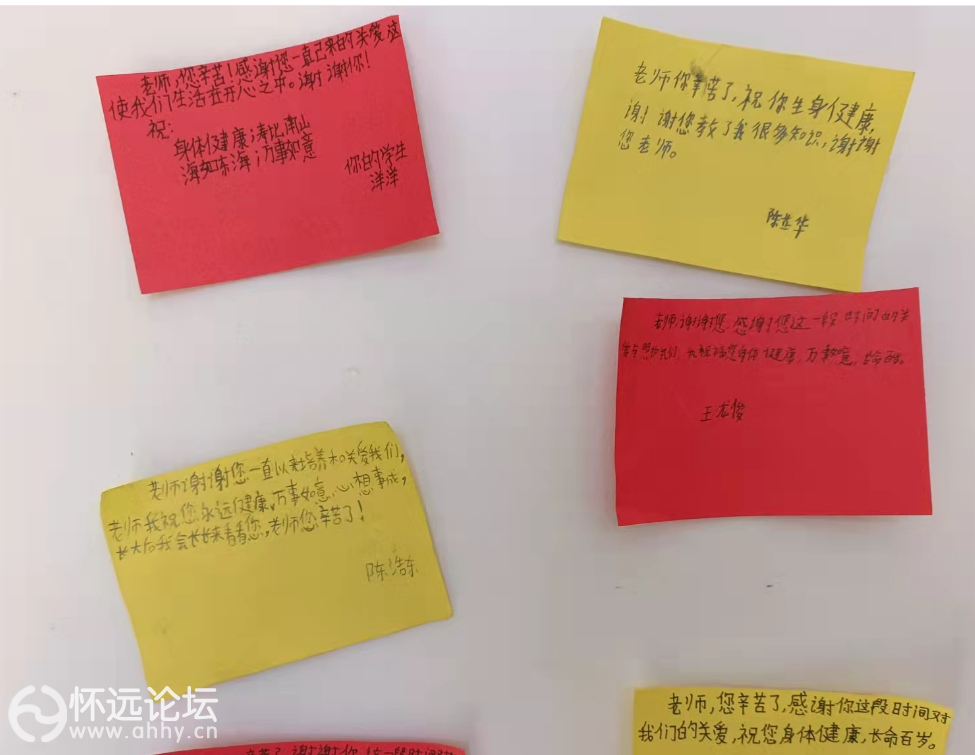 老师,您辛苦!感谢您一直已来的关爱这
使我们生活在开心之中。谢谢你!
祝:
身体健康;寿比南山
海如东海;万事如意
你的学生
洋洋
老师你辛苦了,祝你生身健康,
谢谢您教了我很多知识,谢谢
您老师。
陈 华
老师,谢谢您,感谢您这一段时间的关
我们, 祝 您身体健康,万事如意,
王龙俊
老师谢谢您一直以来培养和关爱我们,
老师我祝您永远健康,万事如意,心想事成,
长大后我会长长来看看您,老师您辛苦了!
陈浩东
老师,您辛苦了,感谢你这段时间对
我们的关爱,祝您身体健康,长命百岁。
辛苦了,谢谢你,这一段时间
怀远论坛
www.ahhy.cn